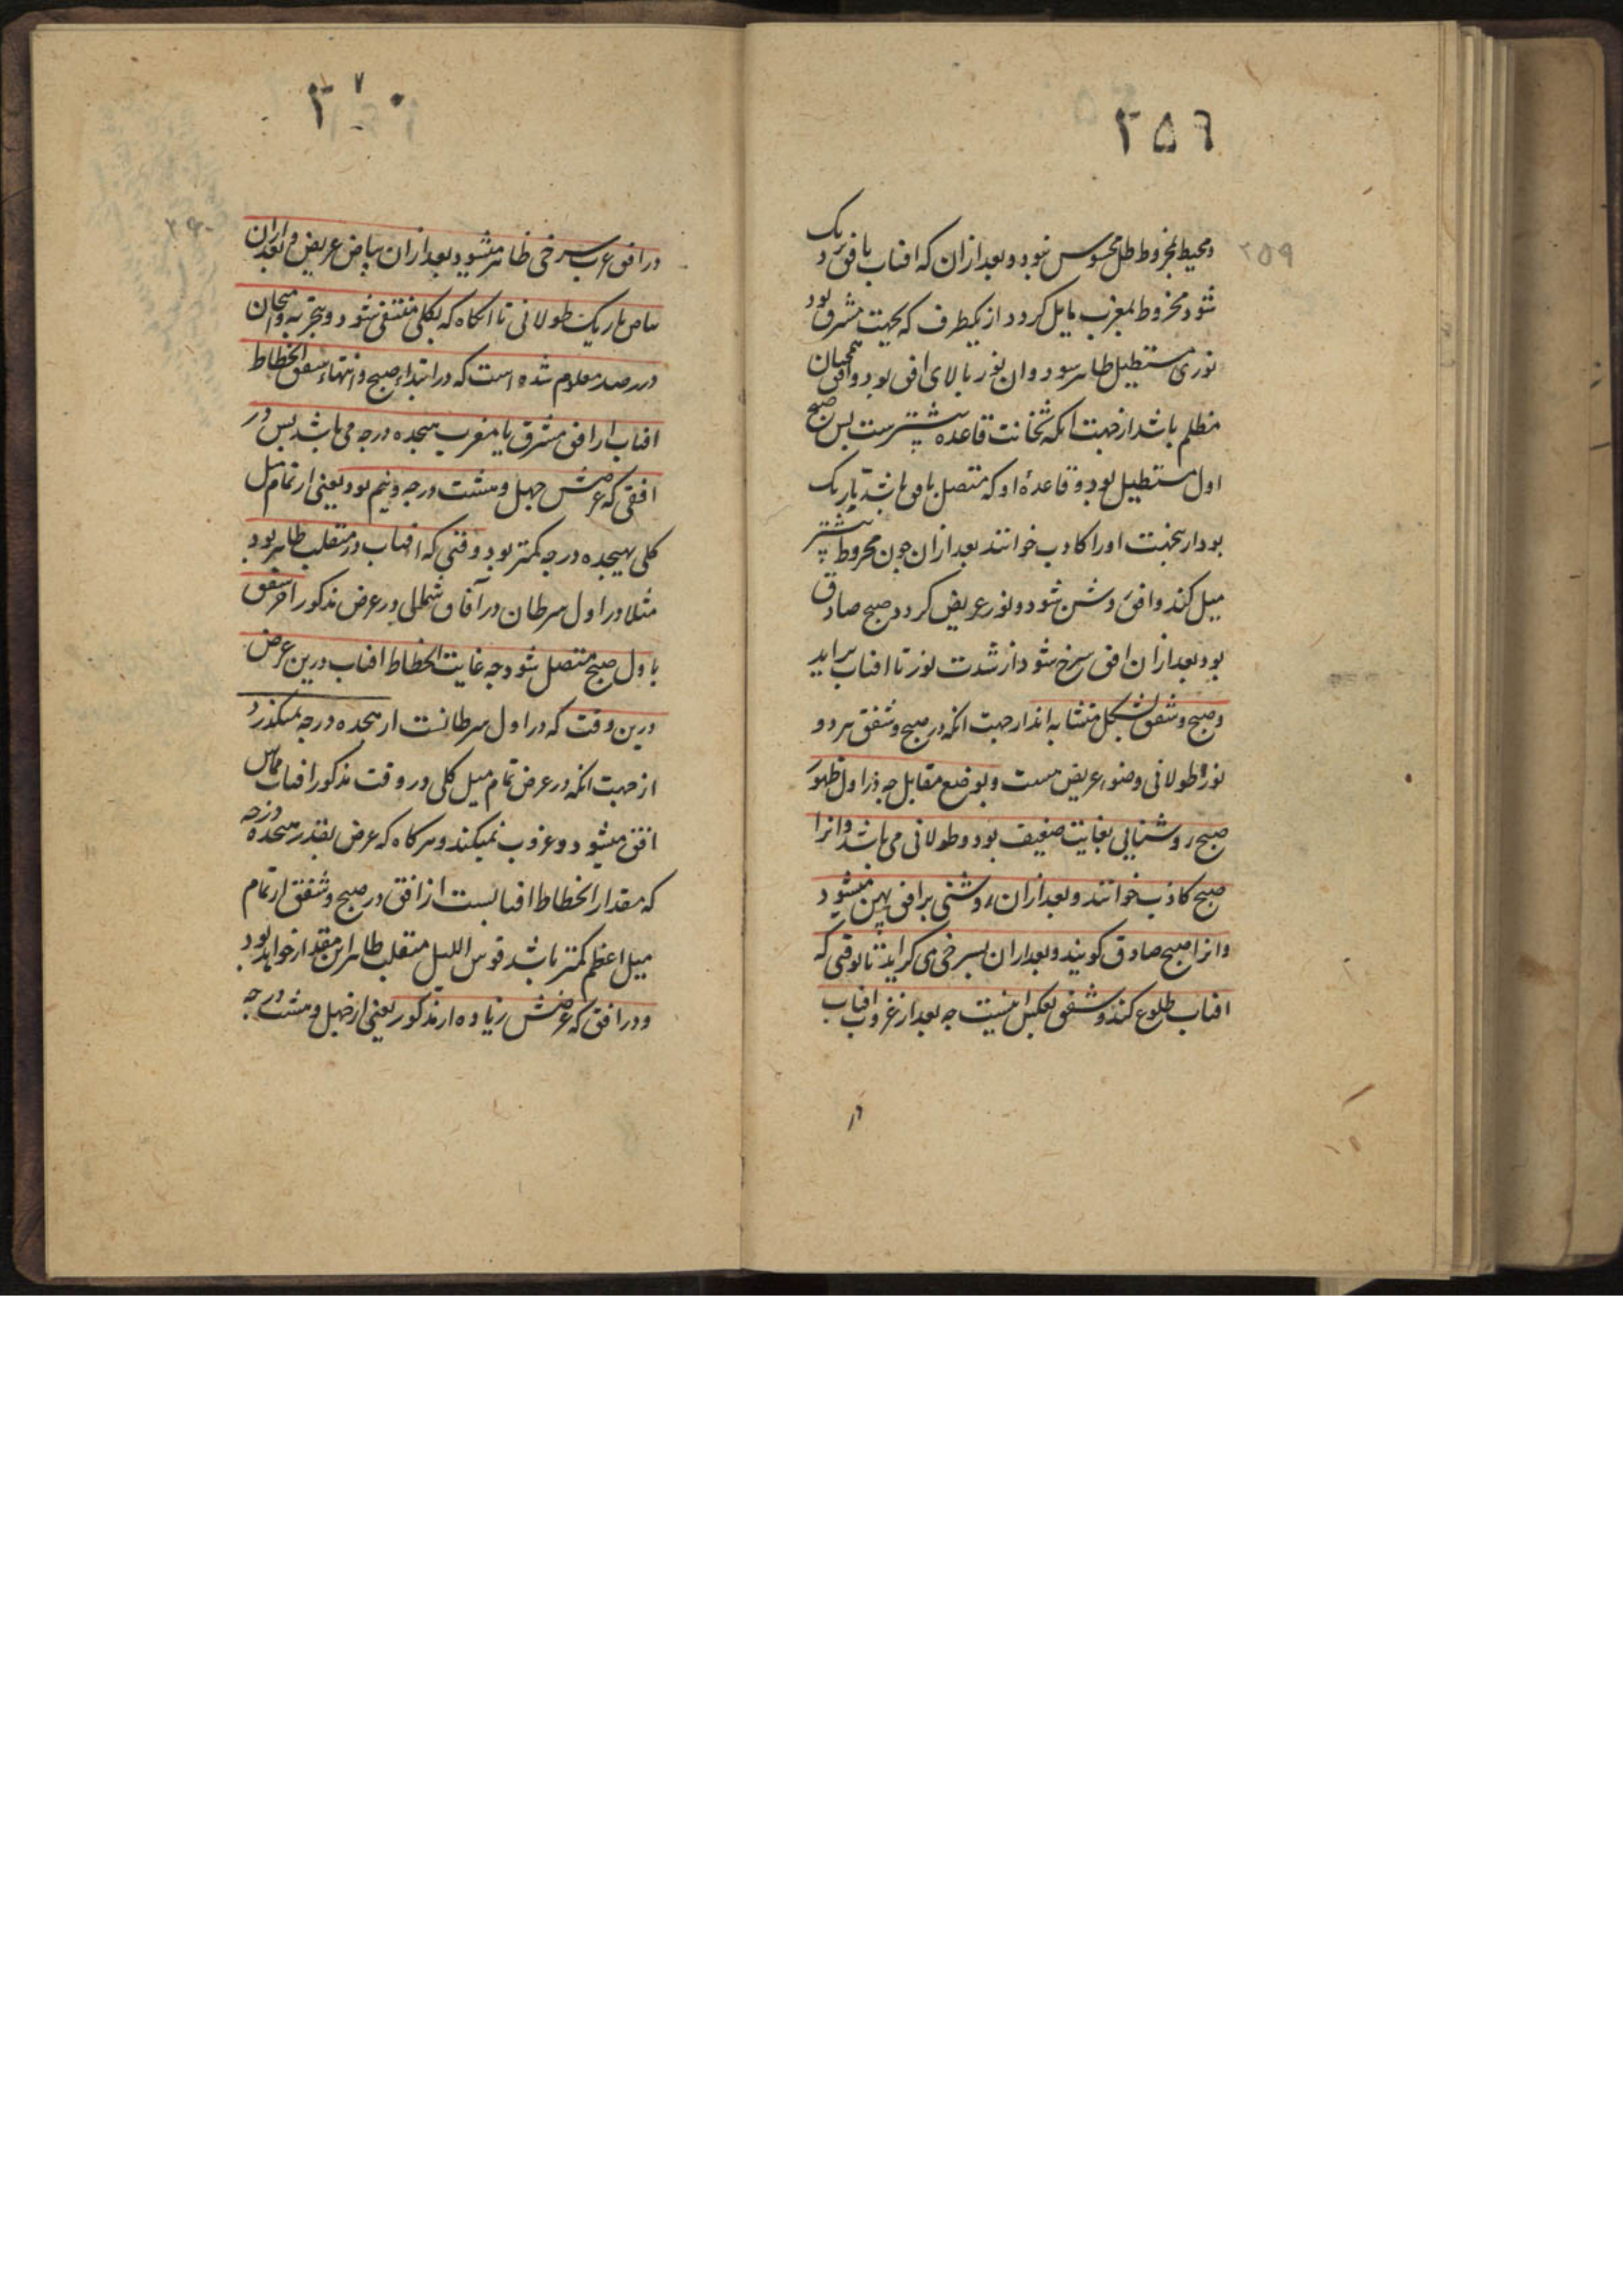 ۲۵۹
۲۵۹
ومحیط مخروط ظل محسوس نبود و بعد از ان که افتاب بافق نزدیک
شود مخروط بمغرب مایل کردد از یکطرف که بجهت مشرق بود
نوری مستطیل ظاهر شود و ان نور بالای افق بود و افق همچنان
مظلم باشد از جهت انکه ثخانت قاعده بیشترست پس صبح
اول مستطیل بود و قاعدهٔ او که متصل بافق باشد تاریک
بود ازینجهت اورا کاذب خوانند بعد ازان چون مخروط بیشتر
میل کند وافق روشن شود ونور عریض کردد صبح صادق
بود بعد ازان افق سرخ شود از شدت نور تا افتاب براید
وصبح وشفق بشکل متشابه اند از جهت انکه در صبح وشفق هر دو
نور طولانی وضوء عریض هست وبوضع مقابل چه در اول ظهور
صبح روشنایی بغایت ضعیف بود وطولانی می باشد وانرا
صبح کاذب خوانند وبعد ازان روشنی بر افق پهن میشود
وانرا صبح صادق کویند وبعد ازان بسرخی می کراید تا بوقتی که
افتاب طلوع کند وشفق بعکس اینست چه بعد از غروب افتاب
در
۲۷۰
در افق غرب سرخی ظاهر میشود بعد ازان بیاض عریض و بعد ازان
بیاض باریک طولانی تا انکاه که بکلی منتفی شود و بتجربه و امتحان
در رصد معلوم شده است که در ابتداء صبح وانتهاء شفق انحطاط
افتاب از افق مشرق یا مغرب هیجده درجه می باشد پس در
افقی که عرضش چهل وهشت درجه ونیم بود یعنی از تمام میل
کلی بهیجده درجه کمتر بود وقتی که افتاب در منقلب ظاهر بود
مثلا در اول سرطان در آفاق شمالی در عرض مذکور اخر شفق
باول صبح متصل شود چه غایت انحطاط افتاب درین عرض
درین وقت که در اول سرطانست از هیجده درجه نمیکذرد
از جهت انکه در عرض تمام میل کلی در وقت مذکور افتاب مماس
افق میشود و غروب نمیکند وهر کاه که عرض بقدر هیجده درجه
که مقدار انحطاط افتابست از افق در صبح وشفق از تمام
میل اعظم کمتر باشد قوس اللیل منقلب ظاهر این مقدار خواهد بود
ودر افق که عرضش زیاده از مذکور یعنی از چهل وهشت درجه